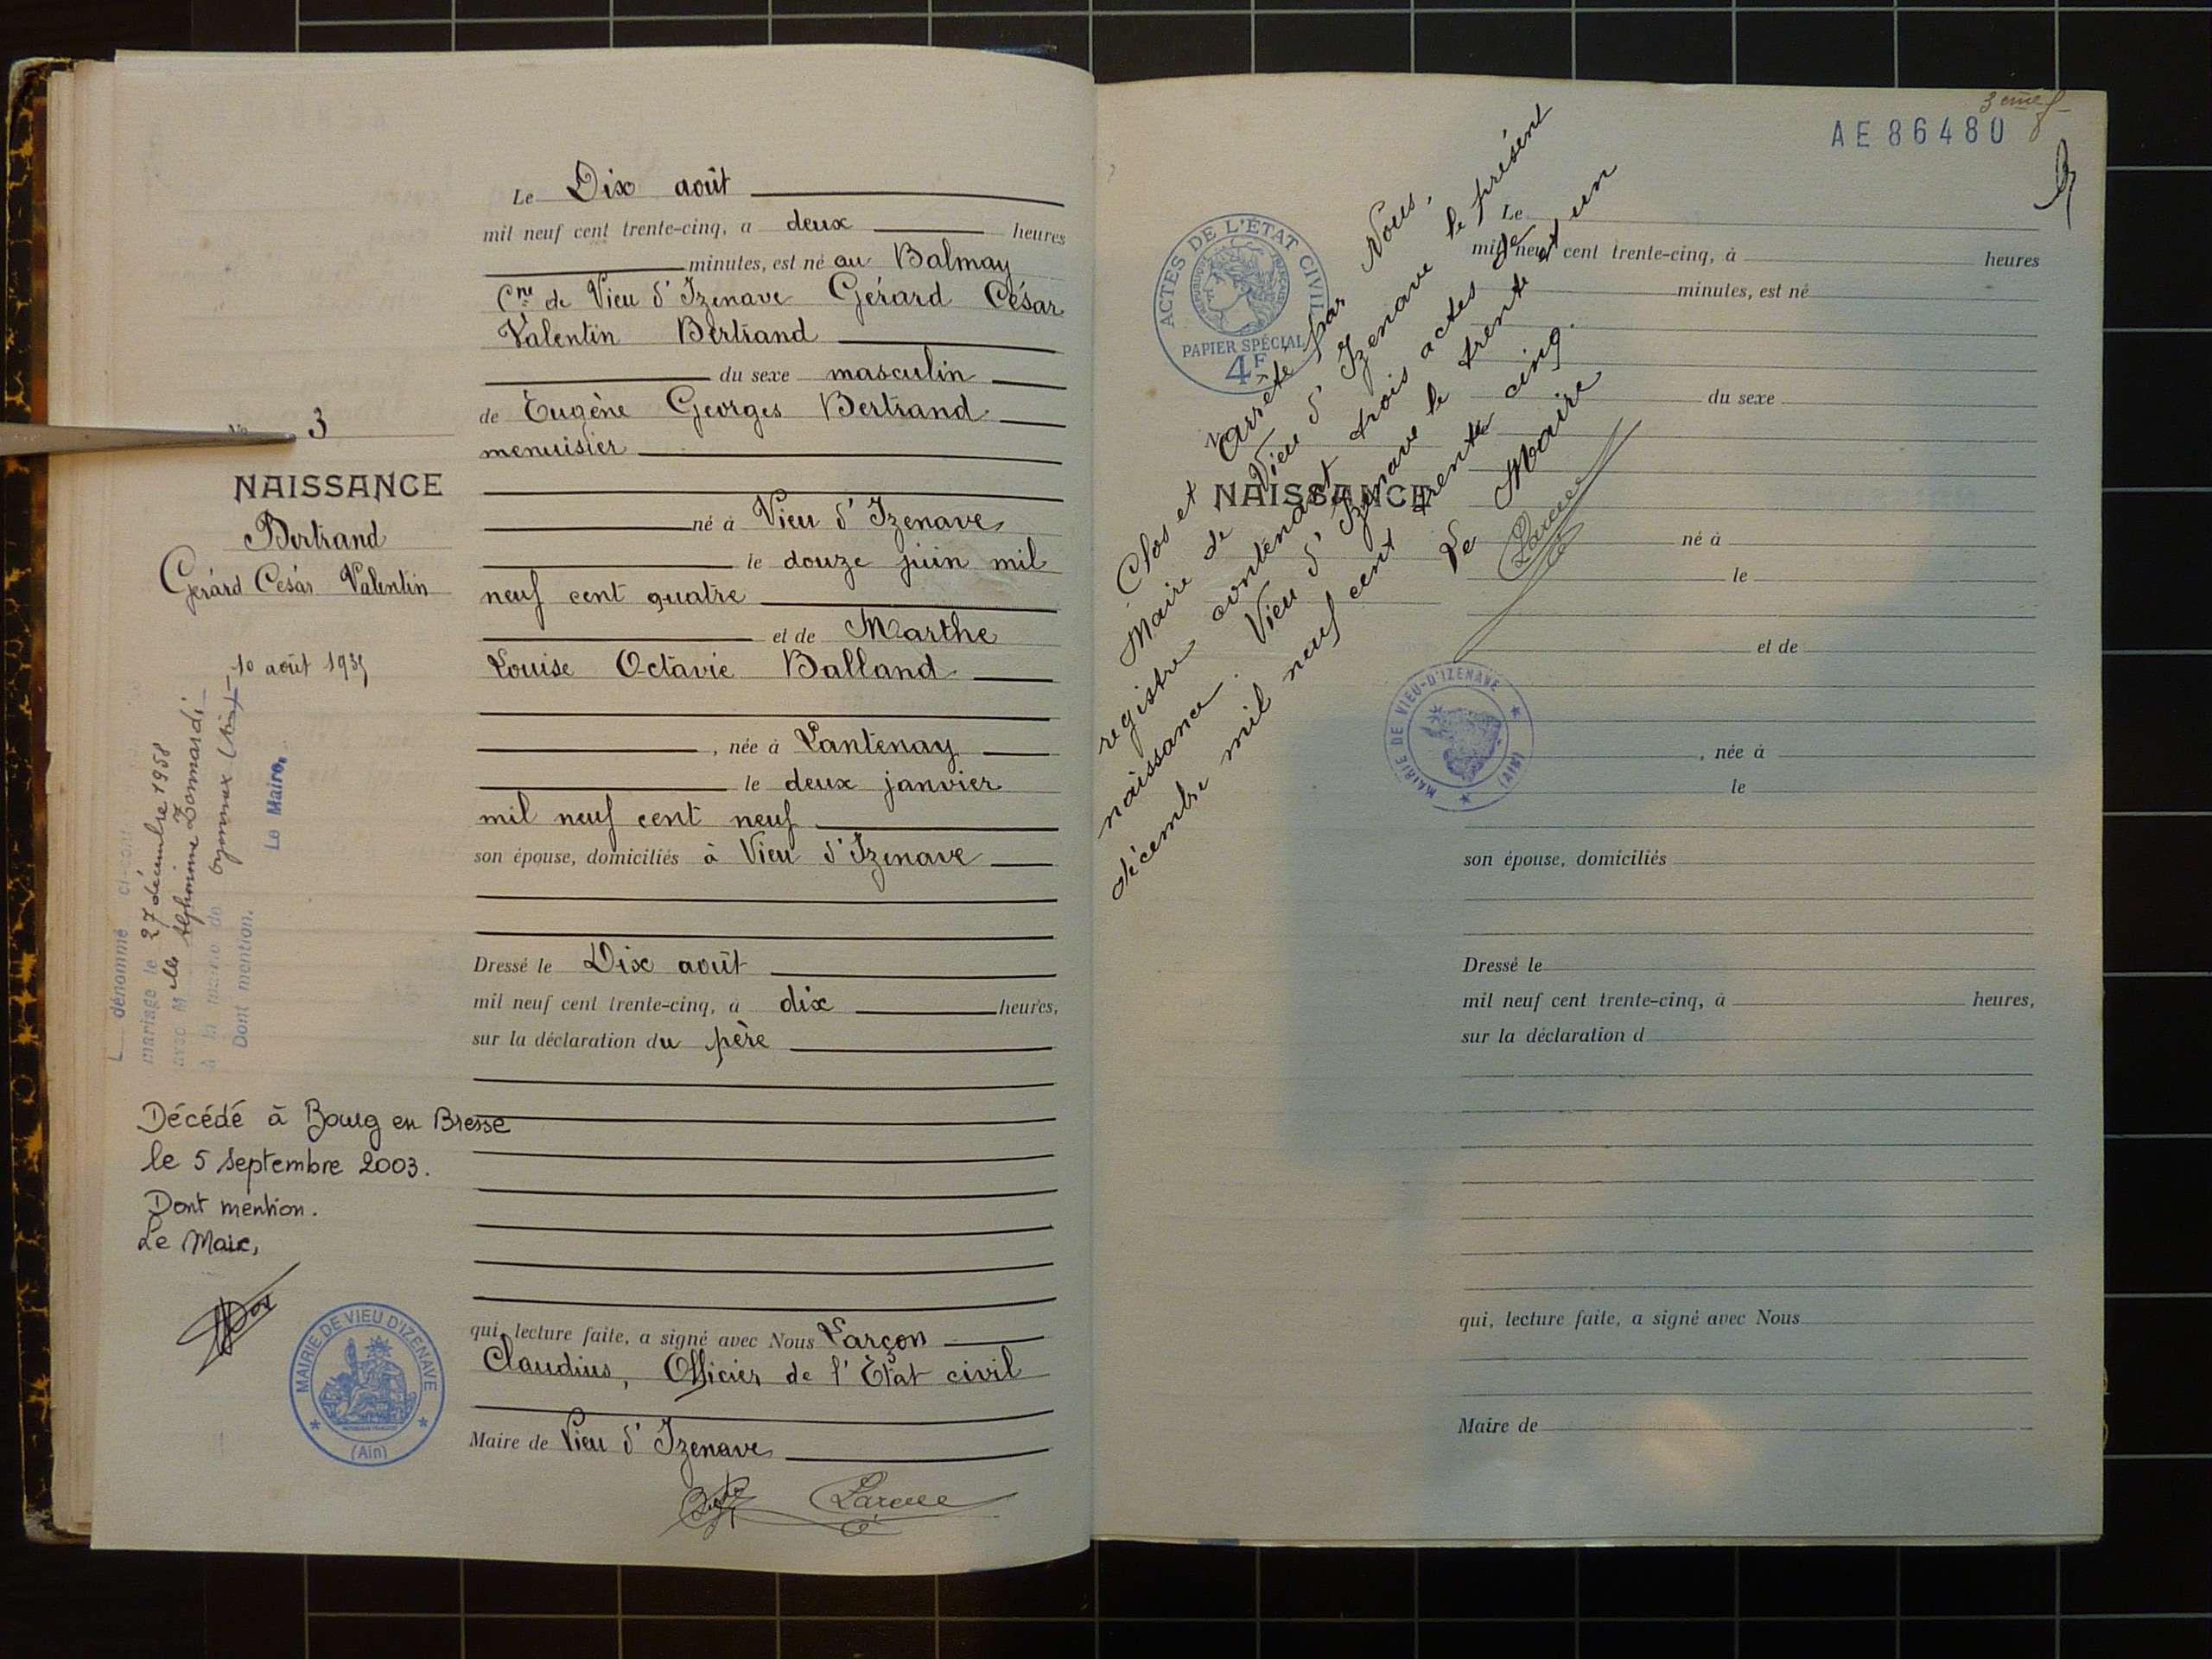 N° 3
NAISSANCE
Bertrand
Gérard César Valentin
10 août 1935
L dénommé ci-
mariage le 27 décembre 1958
avec Melle Alphonsine Zomardi
à la mairie de Oyonnax (Ain)
Dont mention.
Le Maire,
Décédé à Bourg en Bresse
le 5 septembre 2003.
Dont mention.
Le Maire,
MAIRIE DE VIEU D'IZENAVE
(Ain)
Le Dix août
mil neuf cent trente-cinq, à deux heures
minutes, est né au Balmay
Cne de Vieu d'Izenave Gérard César
Valentin Bertrand
du sexe masculin
de Eugène Georges Bertrand
menuisier
né à Vieu d'Izenave
le douze juin mil
neuf cent quatre
et de Marthe
Louise Octavie Balland
, née à Lantenay
le deux janvier
mil neuf cent neuf
son épouse, domiciliés à Vieu d'Izenave
Dressé le Dix août
mil neuf cent trente-cinq, à dix heures,
sur la déclaration du père
qui, lecture faite, a signé avec Nous Larçon
Claudius, Officier de l'Etat civil
Maire de Vieu d'Izenave
3ème f
AE 86480
ACTES DE L'ÉTAT CIVIL
RÉPUBLIQUE FRANÇAISE
PAPIER SPÉCIAL
4F
Clos et arrêté par Nous,
Maire de Vieu d'Izenave le présent
registre contenant trois actes de
naissance. Vieu d'Izenave le trente et un
décembre mil neuf cent trente cinq.
Le Maire
MAIRIE DE VIEU-D'IZENAVE
(AIN)
NAISSANCE
Le
mil neuf cent trente-cinq, à heures
minutes, est né
du sexe
né à
le
et de
, née à
le
son épouse, domiciliés
Dressé le
mil neuf cent trente-cinq, à heures,
sur la déclaration d
qui, lecture faite, a signé avec Nous
Maire de